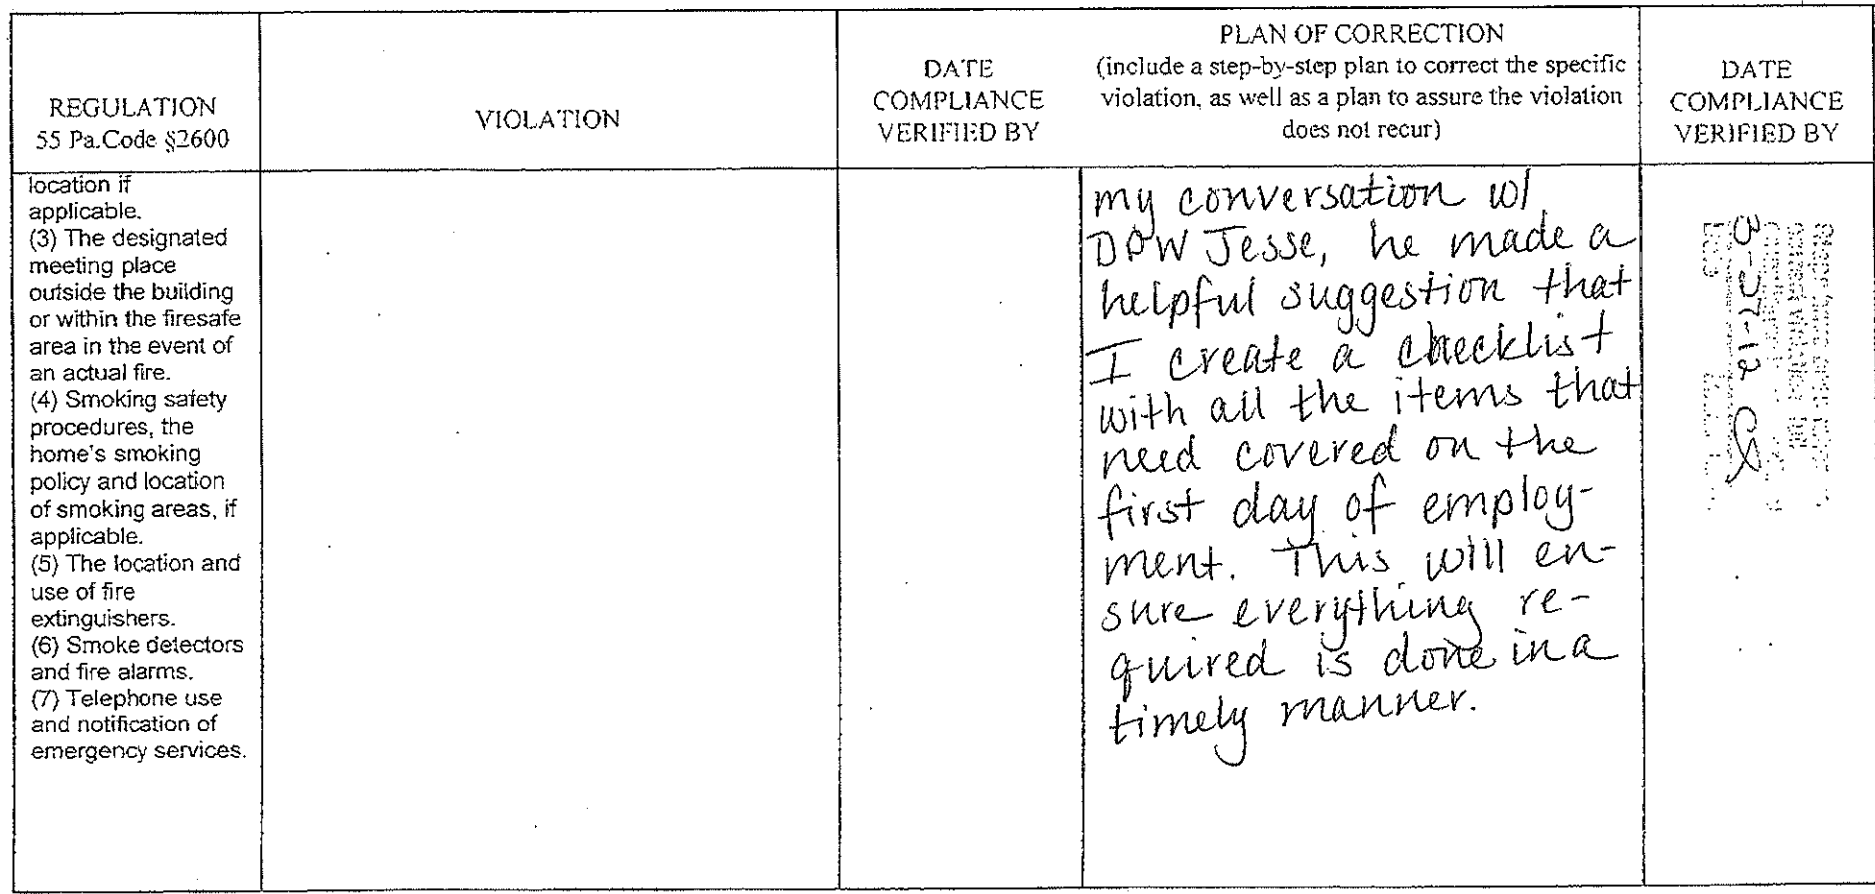 REGULATION
55 Pa.Code §2600
VIOLATION
DATE
COMPLIANCE
VERIFIED BY
PLAN OF CORRECTION
(include a step-by-step plan to correct the specific
violation, as well as a plan to assure the violation
does not recur)
DATE
COMPLIANCE
VERIFIED BY
location if
applicable.
(3) The designated
meeting place
outside the building
or within the firesafe
area in the event of
an actual fire.
(4) Smoking safety
procedures, the
home's smoking
policy and location
of smoking areas, if
applicable.
(5) The location and
use of fire
extinguishers.
(6) Smoke detectors
and fire alarms.
(7) Telephone use
and notification of
emergency services.
my conversation w/
DPW Jesse, he made a
helpful suggestion that
I create a checklist
with all the items that
need covered on the
first day of employ-
ment. This will en-
sure everything re-
quired is done in a
timely manner.